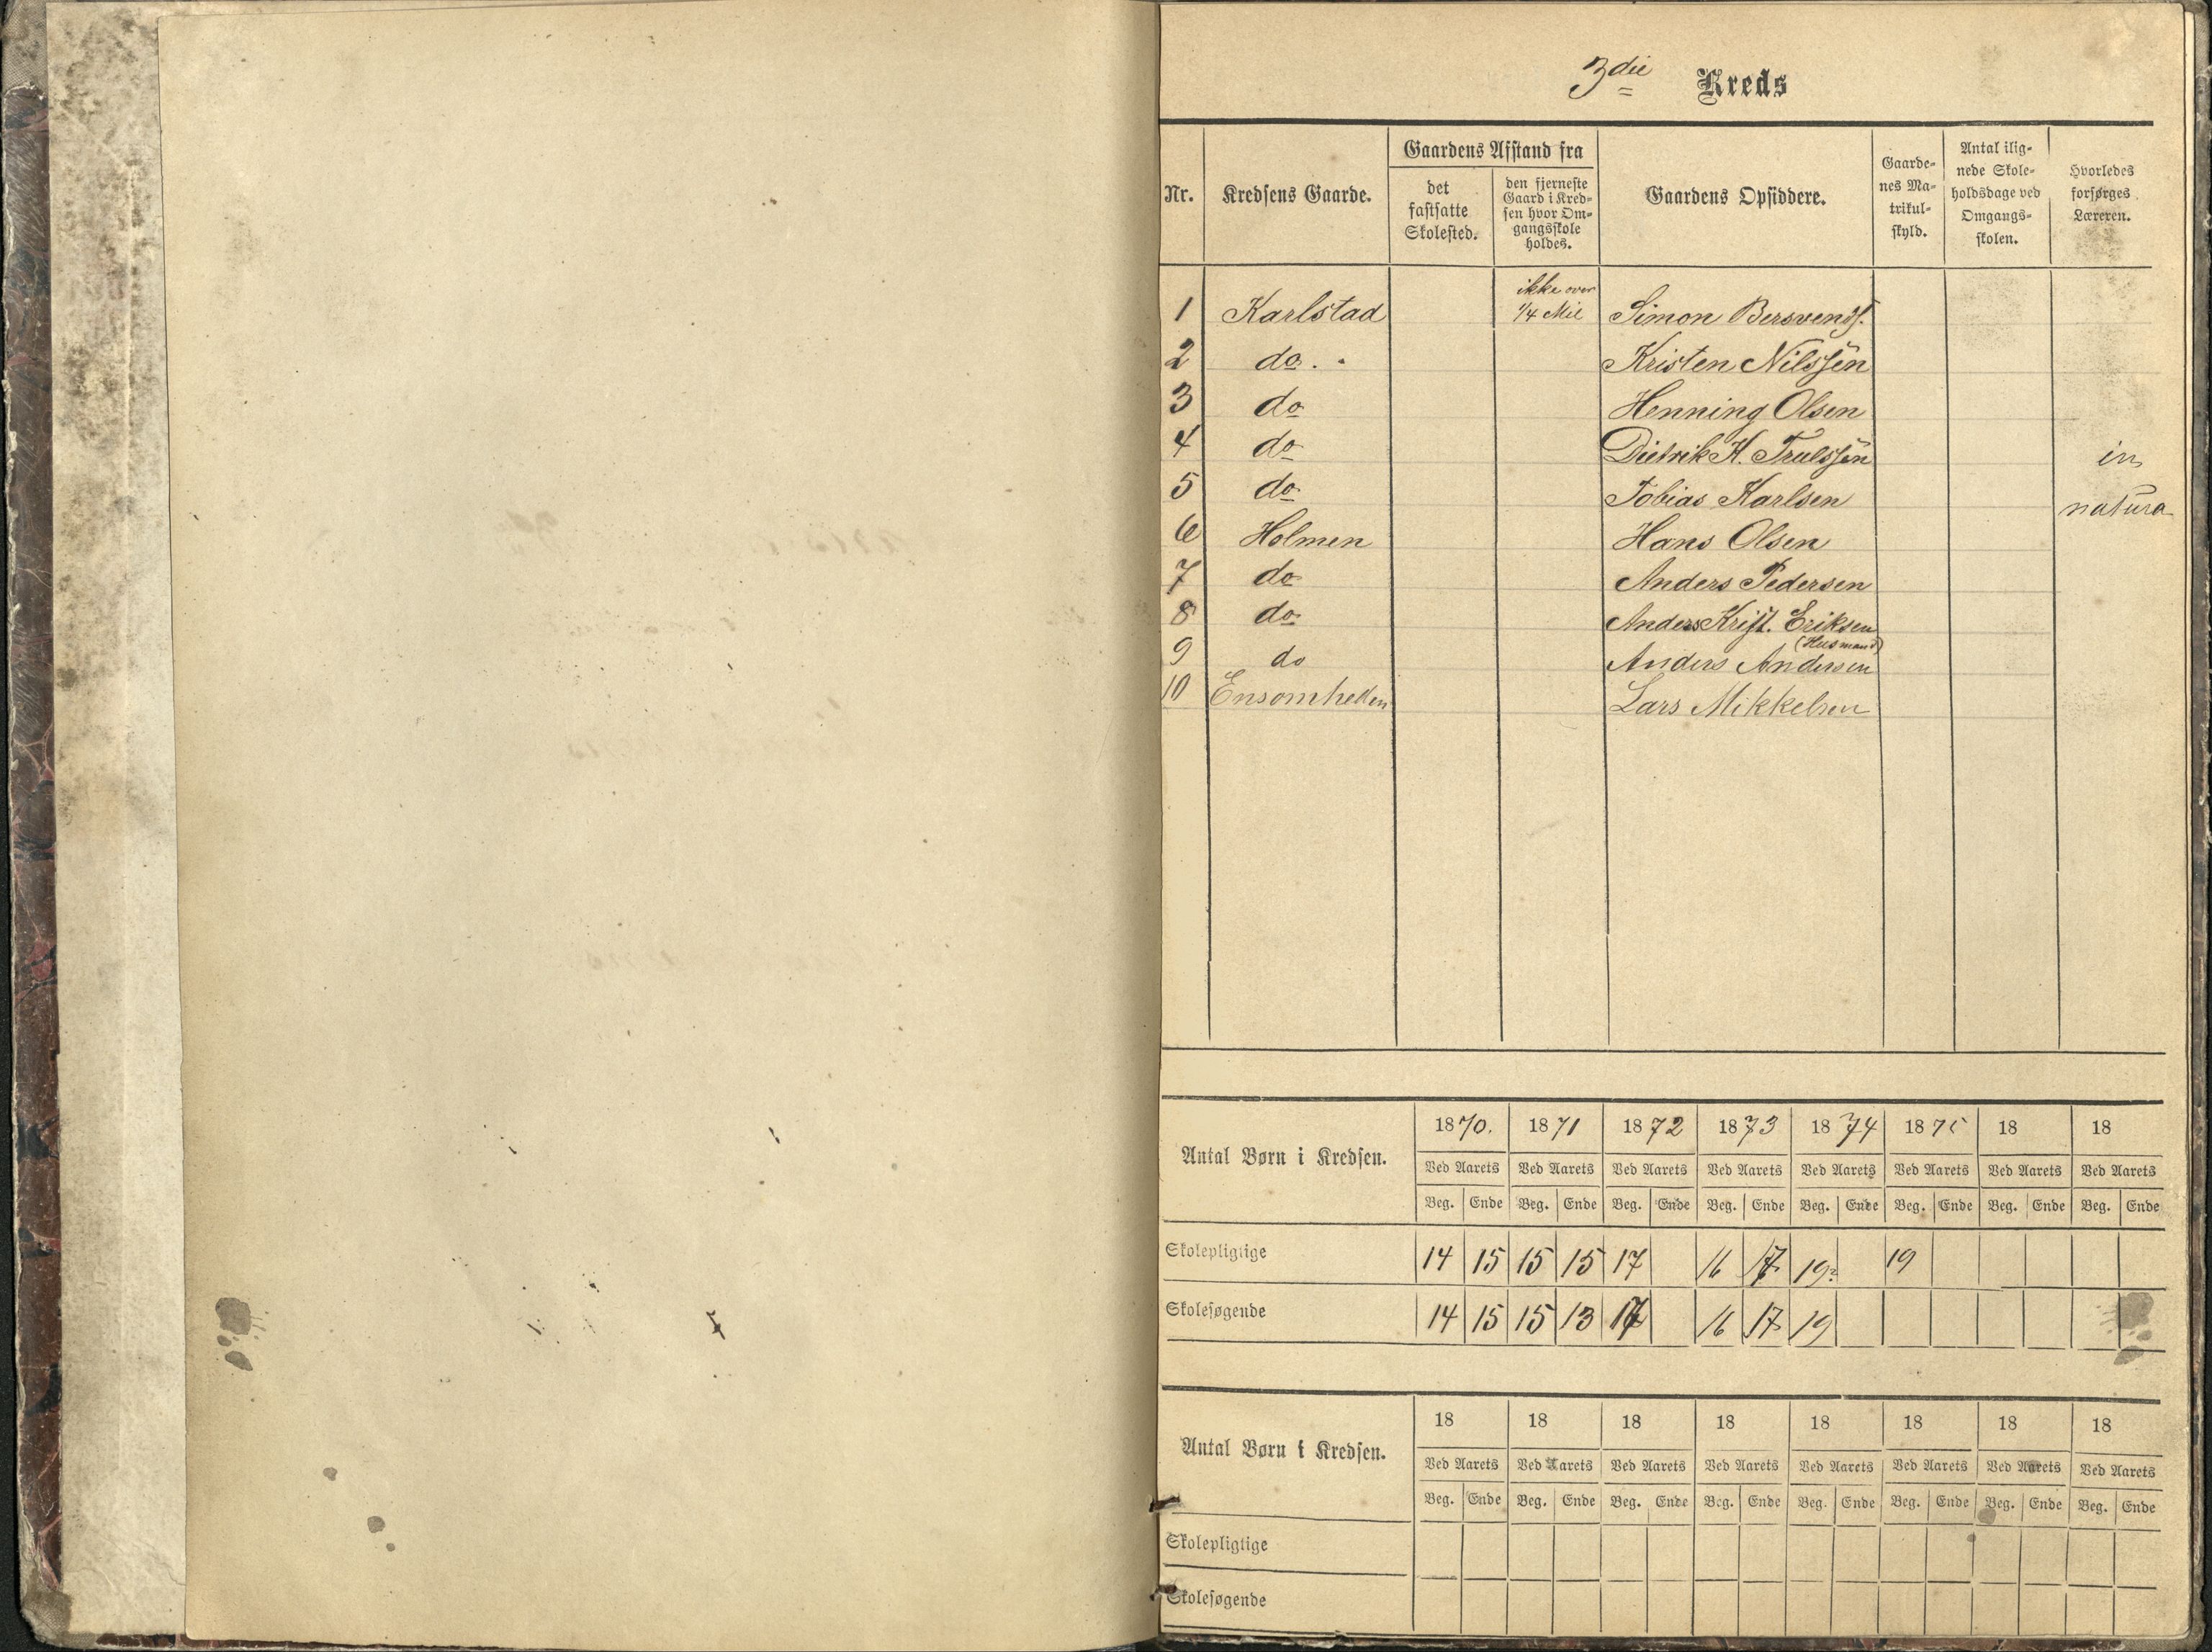 3die Kreds
Nr. Kredsens Gaarde. Gaardens Afstand fra det fastsatte Skolested. den fjerneste Gaard i Kredsen hvor Omgangsskole holdes. Gaardens Opsiddere. Gaardenes Matrikulskyld. Antal ilignede Skoleholdsdage ved Omgangsskolen. Hvorledes forsørges Læreren.
ikke over
1 Karlstad 1/4 Mil Simon Bersvends.
2 do. Kristen Nilssen
3 do Henning Olsen
4 do Dietrik H. Trulssen in
5 do Tobias Karlsen natura
6 Holmen Hans Olsen
7 do Anders Pedersen
8 do Anders Krist. Eriksen
(Husmand)
9 do Anders Andersen
10 Ensomheden Lars Mikkelsen
Antal Børn i Kredsen. 1870. 1871 1872 1873 1874 1875 18 18
Ved Aarets Ved Aarets Ved Aarets Ved Aarets Ved Aarets Ved Aarets Ved Aarets Ved Aarets
Beg. Ende Beg. Ende Beg. Ende Beg. Ende Beg. Ende Beg. Ende Beg. Ende Beg. Ende
Skolepligtige 14 15 15 15 17 16 17 19 19
Skolesøgende 14 15 15 13 17 16 17 19
Antal Børn i Kredsen. 18 18 18 18 18 18 18 18
Ved Aarets Ved Aarets Ved Aarets Ved Aarets Ved Aarets Ved Aarets Ved Aarets Ved Aarets
Beg. Ende Beg. Ende Beg. Ende Beg. Ende Beg. Ende Beg. Ende Beg. Ende Beg. Ende
Skolepligtige
Skolesøgende